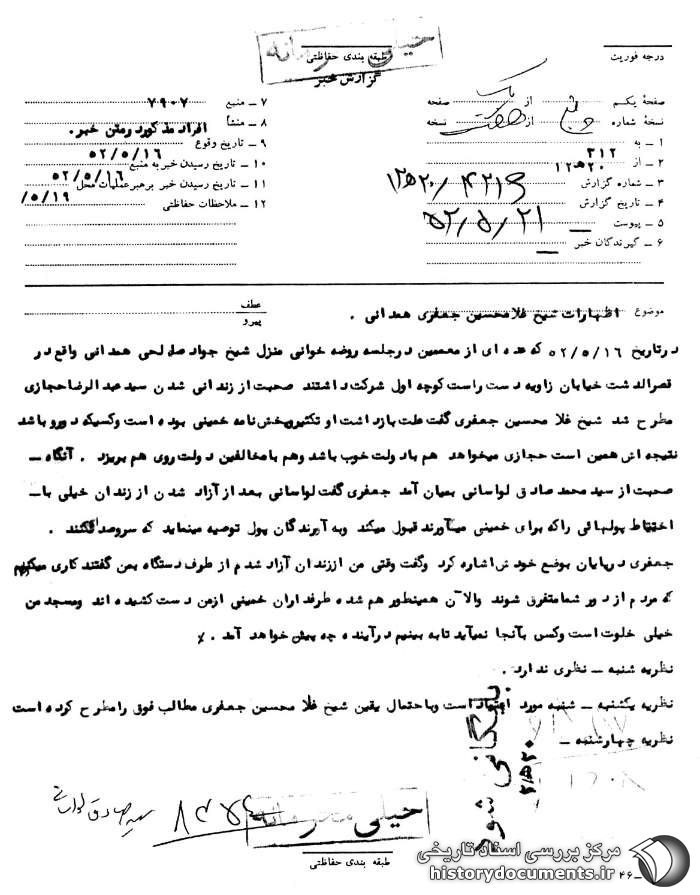 درجه فوریت
طبقه بندی حفاظتی
خیلی محرمانه
گزارش خبر
صفحه یکم از یک صفحه
نسخه شماره از نسخه
۱ ـ به ۳۱۲
۲ ـ از ۲۰ ه ۱۲
۳ ـ شماره گزارش
۴ ـ تاریخ گزارش ۵۲/۵/۲۱
۵ ـ پیوست
۶ ـ گیرندگان خبر
۷ ـ منبع ۷۹۰۷
۸ ـ منشأ افراد مذکور در متن خبر.
۹ ـ تاریخ وقوع ۵۲/۵/۱۶
۱۰ ـ تاریخ رسیدن خبر به منبع ۵۲/۵/۱۶
۱۱ ـ تاریخ رسیدن خبر برهبر عملیات محل ۵/۱۹/
۱۲ ـ ملاحظات حفاظتی
موضوع اظهارات شیخ غلامحسین جعفری همدانی .
عطف
پیرو
درتاریخ ۵۲/۵/۱۶ که عده ای از معممین درجلسه روضه خوانی منزل شیخ جواد صالحی همدانی واقع در
قصرالدشت خیابان زاویه دست راست کوچه اول شرکت داشتند صحبت از زندانی شدن سید عبدالرضا حجازی
مطرح شد شیخ غلا محسین جعفری گفت علت بازداشت او تکثیر وپخش نامه خمینی بوده است وکسیکه دورو باشد
نتیجه اش همین است حجازی میخواهد هم باد ولت خوب باشد وهم بامخالفین دولت روی هم بریزد . آنگاه ـ
صحبت از سید محمد صادق لواسانی بمیان آمد جعفری گفت لواسانی بعد از آزاد شدن از زندان خیلی با ـ
احتیاط پولهائی راکه برای خمینی میآورند قبول میکند وبه آورندگان پول توصیه مینماید که سروصدا نکنند .
جعفری درپایان بوضع خودش اشاره کرد وگفت وقتی من اززندان آزاد شدم از طرف دستگاه بمن گفتند کاری میکنیم
که مردم از دور شما متفرق شوند والآن همینطور هم شده طرفداران خمینی ازمن دست کشیده اند ومسجد من
خیلی خلوت است وکسی بآنجا نمیآید تا به بینیم درآینده چه پیش خواهد آمد . ٪
نظریه شنبه ـ نظری ندارد .
نظریه یکشنبه ـ شنبه مورد اعتماد است وباحتمال یقین شیخ غلا محسین جعفری مطالب فوق رامطرح کرده است
نظریه چهارشنبه ـ
بایگانی شود
۲۰ ه ۲
سید صادق لواسانی
خیلی محرمانه
طبقه بندی حفاظتی
۴۶ ـ
مرکز بررسی اسناد تاریخی
historydocuments.ir